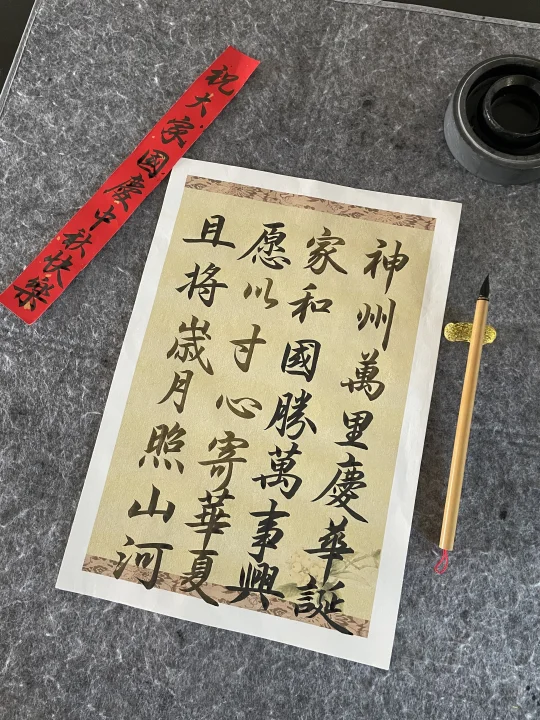 祝大家國慶中秋快樂
神州萬里慶華誕
家和國勝萬事興
愿以寸心寄華夏
且將歲月照山河